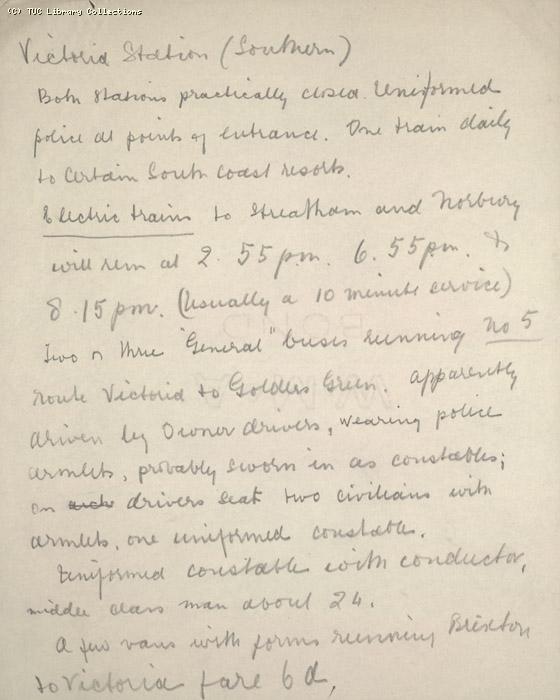 (C) TUC Library Collections
Victoria Station (Southern)
Both stations practically closed. Uniformed
police at points of entrance. One train daily
to certain South coast resorts.
Electric trains to Streatham and Norbury
will run at 2.55 pm. 6.55 pm. &
8.15 pm. (Usually a 10 minute service)
Two or three "General" buses running No 5
route Victoria to Golders Green. Apparently
driven by Owner drivers, wearing police
armlets, probably sworn in as constables;
on each drivers seat two civilians with
armlets, one uniformed constable.
Uniformed constable with conductor,
middle class man about 24.
A few vans with forms running Brixton
to Victoria fare 6d.